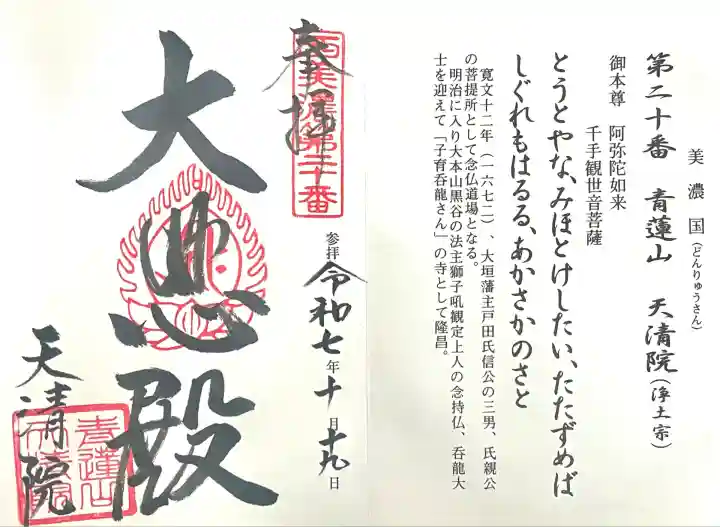 美濃国(どんりゅうさん)
第二十番 青蓮山 天清院(浄土宗)
御本尊 阿弥陀如来
千手観世音菩薩
とうとやな、みほとけしたい、たたずめば
しぐれもはるる、あかさかのさと
寛文十二年(一六七二)、大垣藩主戸田氏信公の三男、氏親公
の菩提所として念仏道場となる。
明治に入り大本山黒谷の法主獅子吼観定上人の念持仏、呑龍大
士を迎えて「子育呑龍さん」の寺として隆昌。
奉拝
西美濃第二十番
参拝 令和七年十月十九日
大悲殿
天清院
青蓮山